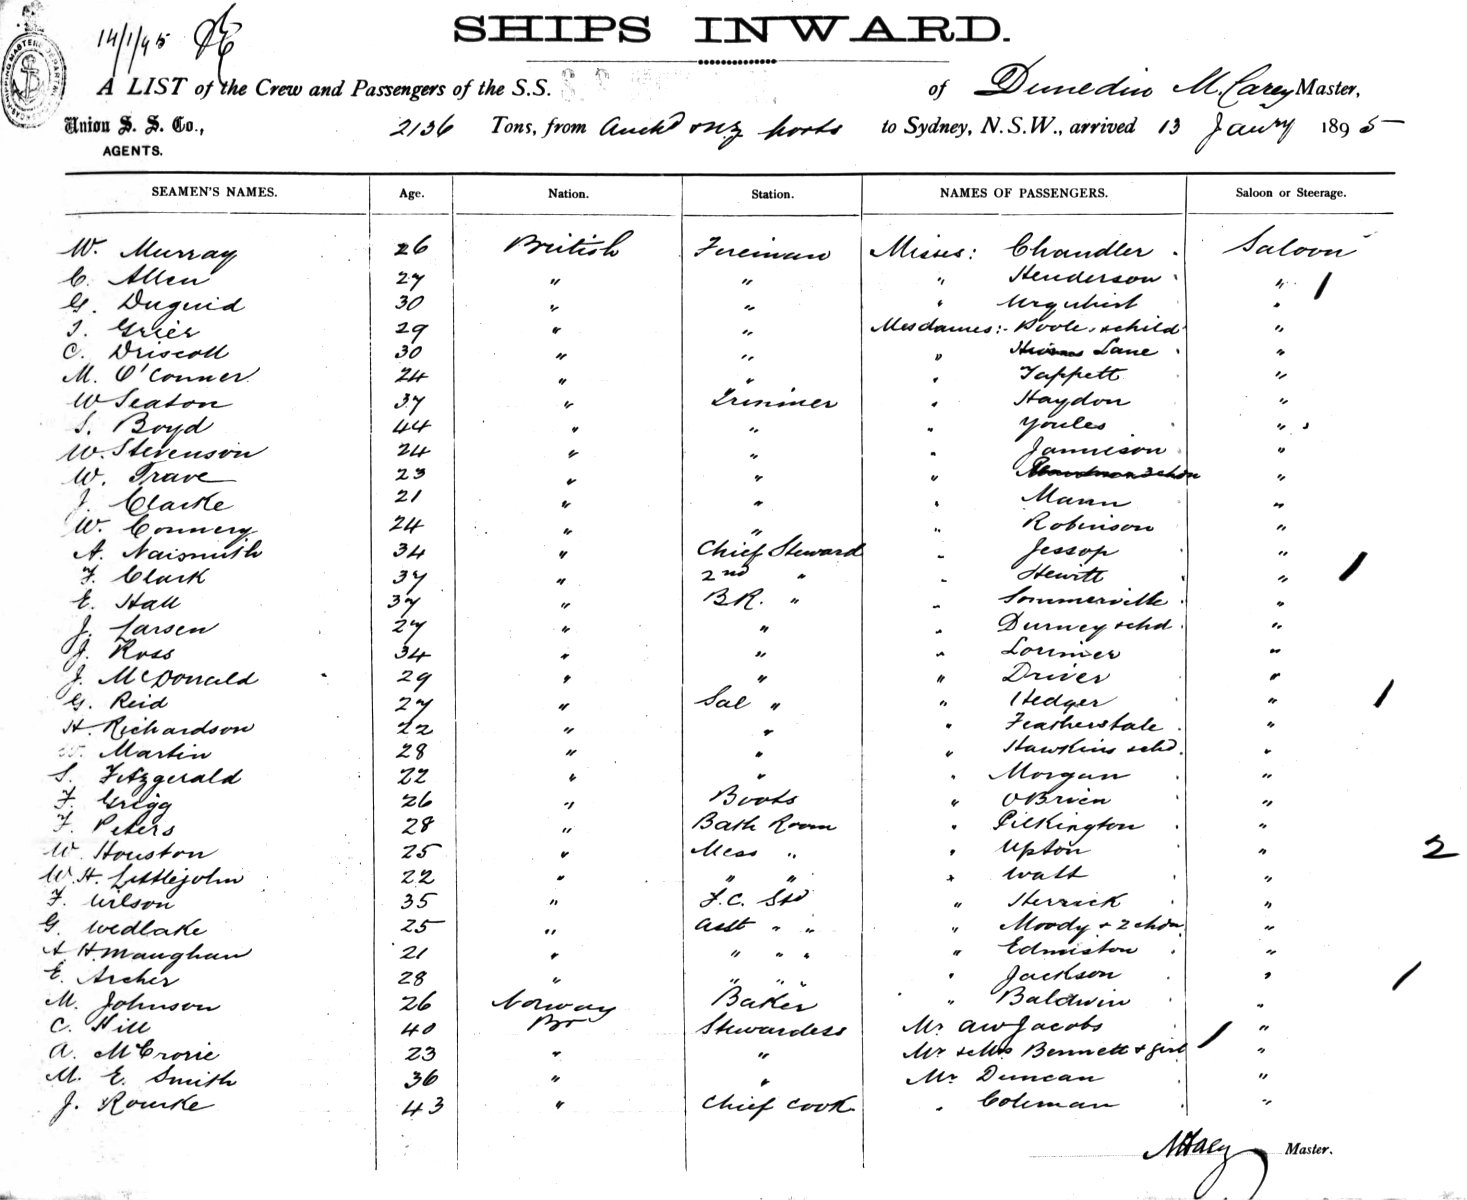 14/1/95
SHIPS INWARD.
A LIST of the Crew and Passengers of the S.S. of Dunedin M. Carey Master,
Union S. S. Co., 2136 Tons, from Auckd & NZ ports to Sydney, N.S.W., arrived 13 Jany 1895
AGENTS.
SEAMEN'S NAMES. Age. Nation. Station. NAMES OF PASSENGERS. Saloon or Steerage.
W. Murray 26 British Fireman Misses: Chandler . Saloon
C. Allen 27 " " " Henderson . " 1
G. Duguid 30 " " " Urquhart "
T. Grier 29 " " Mesdames:- Poole & child "
C. Driscoll 30 " " " Lane . "
M. O'Conner 24 " " " Tappett . "
W Seaton 37 " Trimmer " Haydon . "
S. Boyd 44 " " " Youles . "
W. Stevenson 24 " " " Jamieson . "
W. Trave 23 " " " "
J. Clarke 21 " " " Mann "
W. Connery 24 " " " Robinson "
A. Naismith 34 " Chief Steward " Jessop . "
F. Clark 37 " 2nd " " Hewitt . " 1
E. Hall 37 " B.R. " " Sommerville . "
J. Larsen 27 " " " Durney & chd . "
J. Ross 34 " " " Lorimer "
J. McDonald 29 " " " Driver "
G. Reid 27 " Sal " " Hedger . " 1
H. Richardson 22 " " " Featherstale . "
W. Martin 28 " " " Hawkins & chd . "
S. Fitzgerald 22 " " " Morgan . "
F. Grigg 26 " Boots " O'Brien . "
F. Peters 28 " Bath Room " Pilkington . "
W. Houston 25 " Mess " " Upton . " 2
W. H. Littlejohn 22 " " " " Watt . "
F. Wilson 35 " F.C. Std " Herrick . "
G. Wedlake 25 " Asst " " " Moody & 2 chdn "
A H. Maughan 21 " " " " " Edmiston . "
E. Archer 28 " " " " " Jackson . " 1
M. Johnson 26 Norway Baker " Baldwin . "
C. Hill 40 Br Stewardess Mr A W Jacobs . "
A. McCrorie 23 " " Mr & Mrs Bennett & girl 1 "
M. E. Smith 36 " " Mr Duncan . "
J. Rourke 43 " Chief Cook " Coleman . "
M Carey Master.